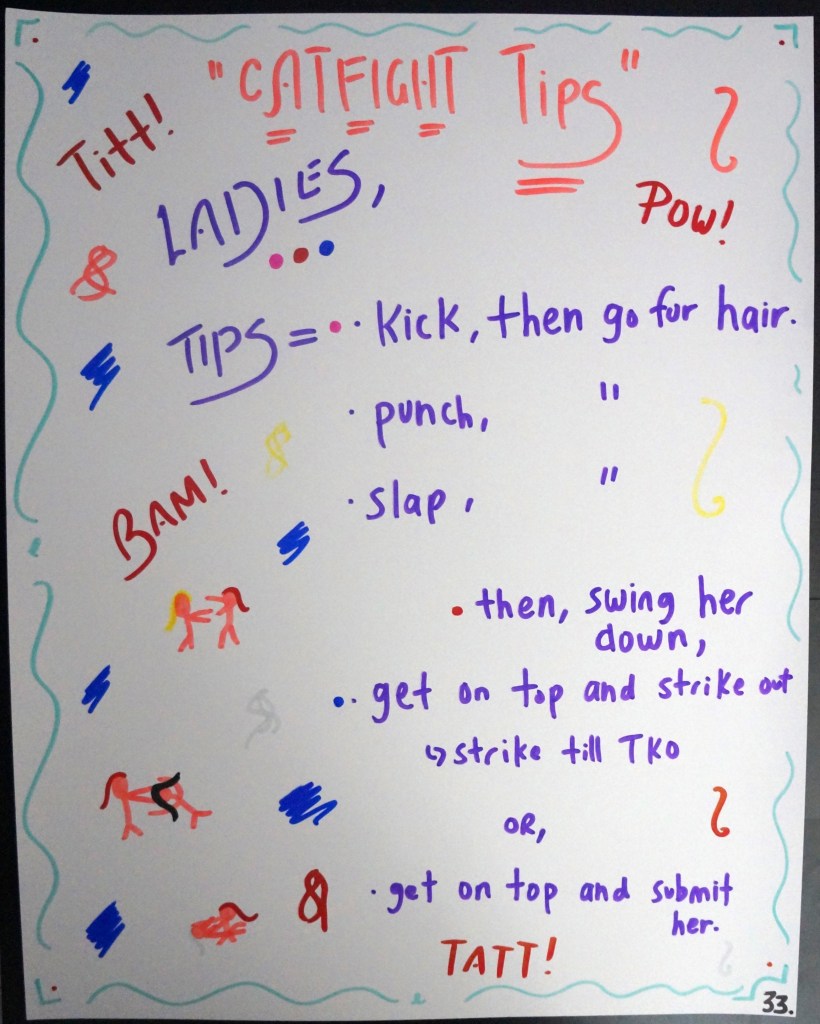 "CATFIGHT Tips"
Titt!
LADIES,
Pow!
TIPS = • · kick, then go for hair.
· punch, "
· slap, "
BAM!
• then, swing her
down,
• · get on top and strike out
↳ strike till TKO
OR,
& · get on top and submit
her.
TATT!
33.